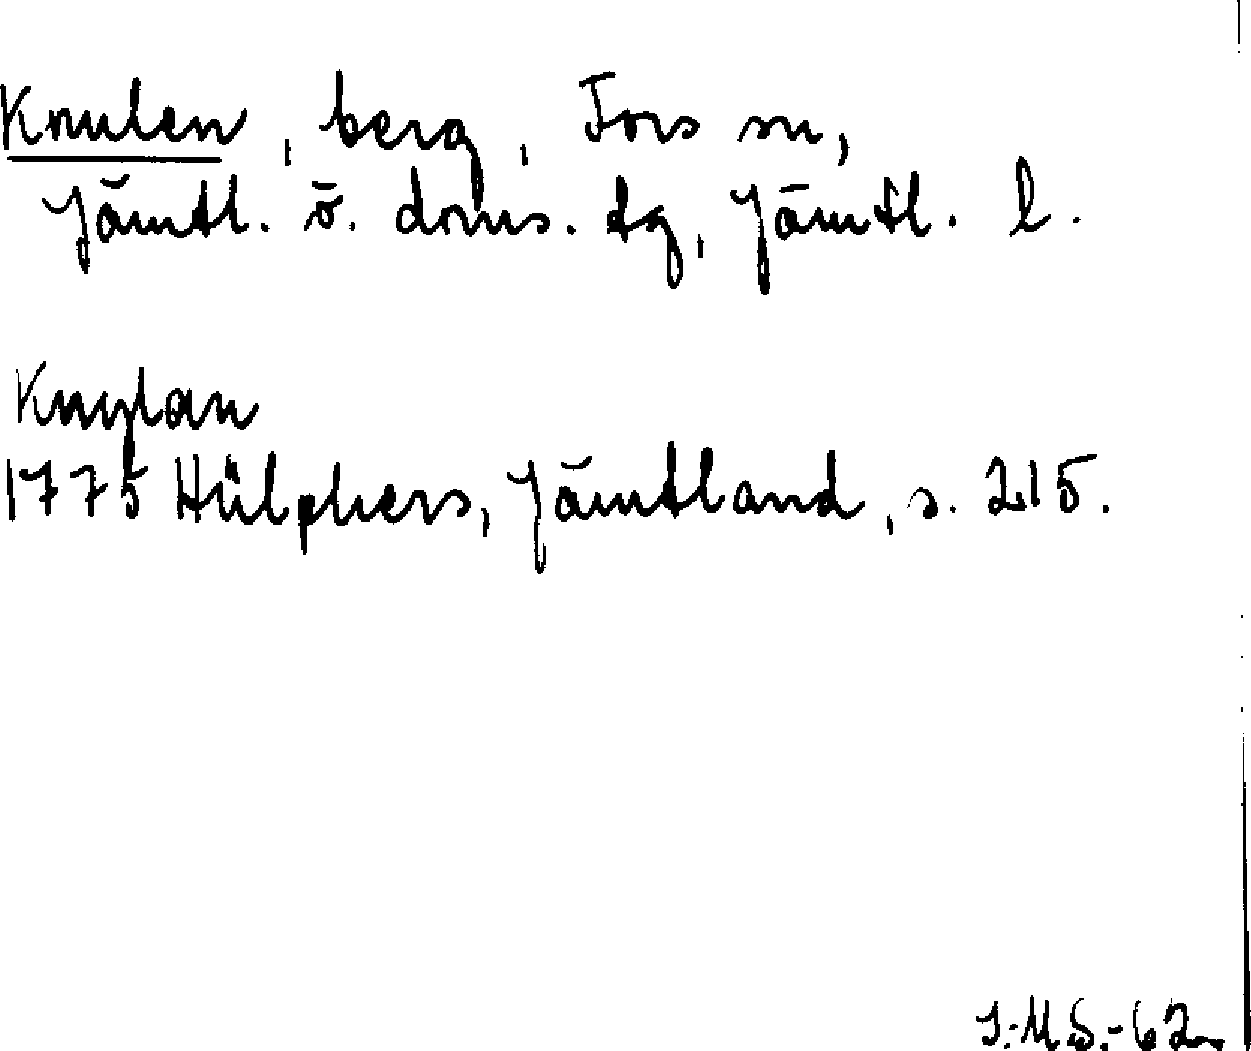 Knulen, berg, Fors sn,
Jämtl. ö. doms. tg, Jämtl. l.
Knylan
1775 Hülphers, Jämtland, s. 215.
I.-M.S.-62